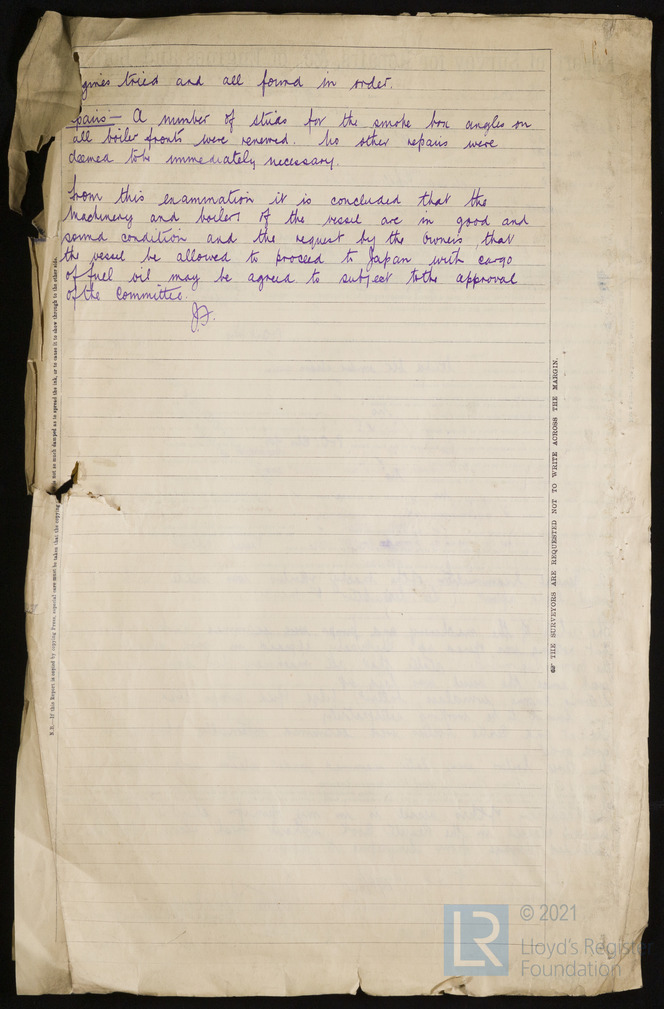 gines tried and all found in order.
pairs:— A number of studs for the smoke box angles on
all boiler fronts were renewed. No other repairs were
deemed to be immediately necessary.
From this examination it is concluded that the
Machinery and boilers of the vessel are in good and
sound condition and the request by the Owners, that
the vessel be allowed to proceed to Japan with cargo
of fuel oil may be agreed to subject to the approval
of the Committee.
J.F.
THE SURVEYORS ARE REQUESTED NOT TO WRITE ACROSS THE MARGIN.
N.B.—If this Report is copied by Copying Press, especial care must be taken that the copying not so much damped as to spread the ink, or to cause it to show through to the other side.
LR
© 2021
Lloyd's Register
Foundation